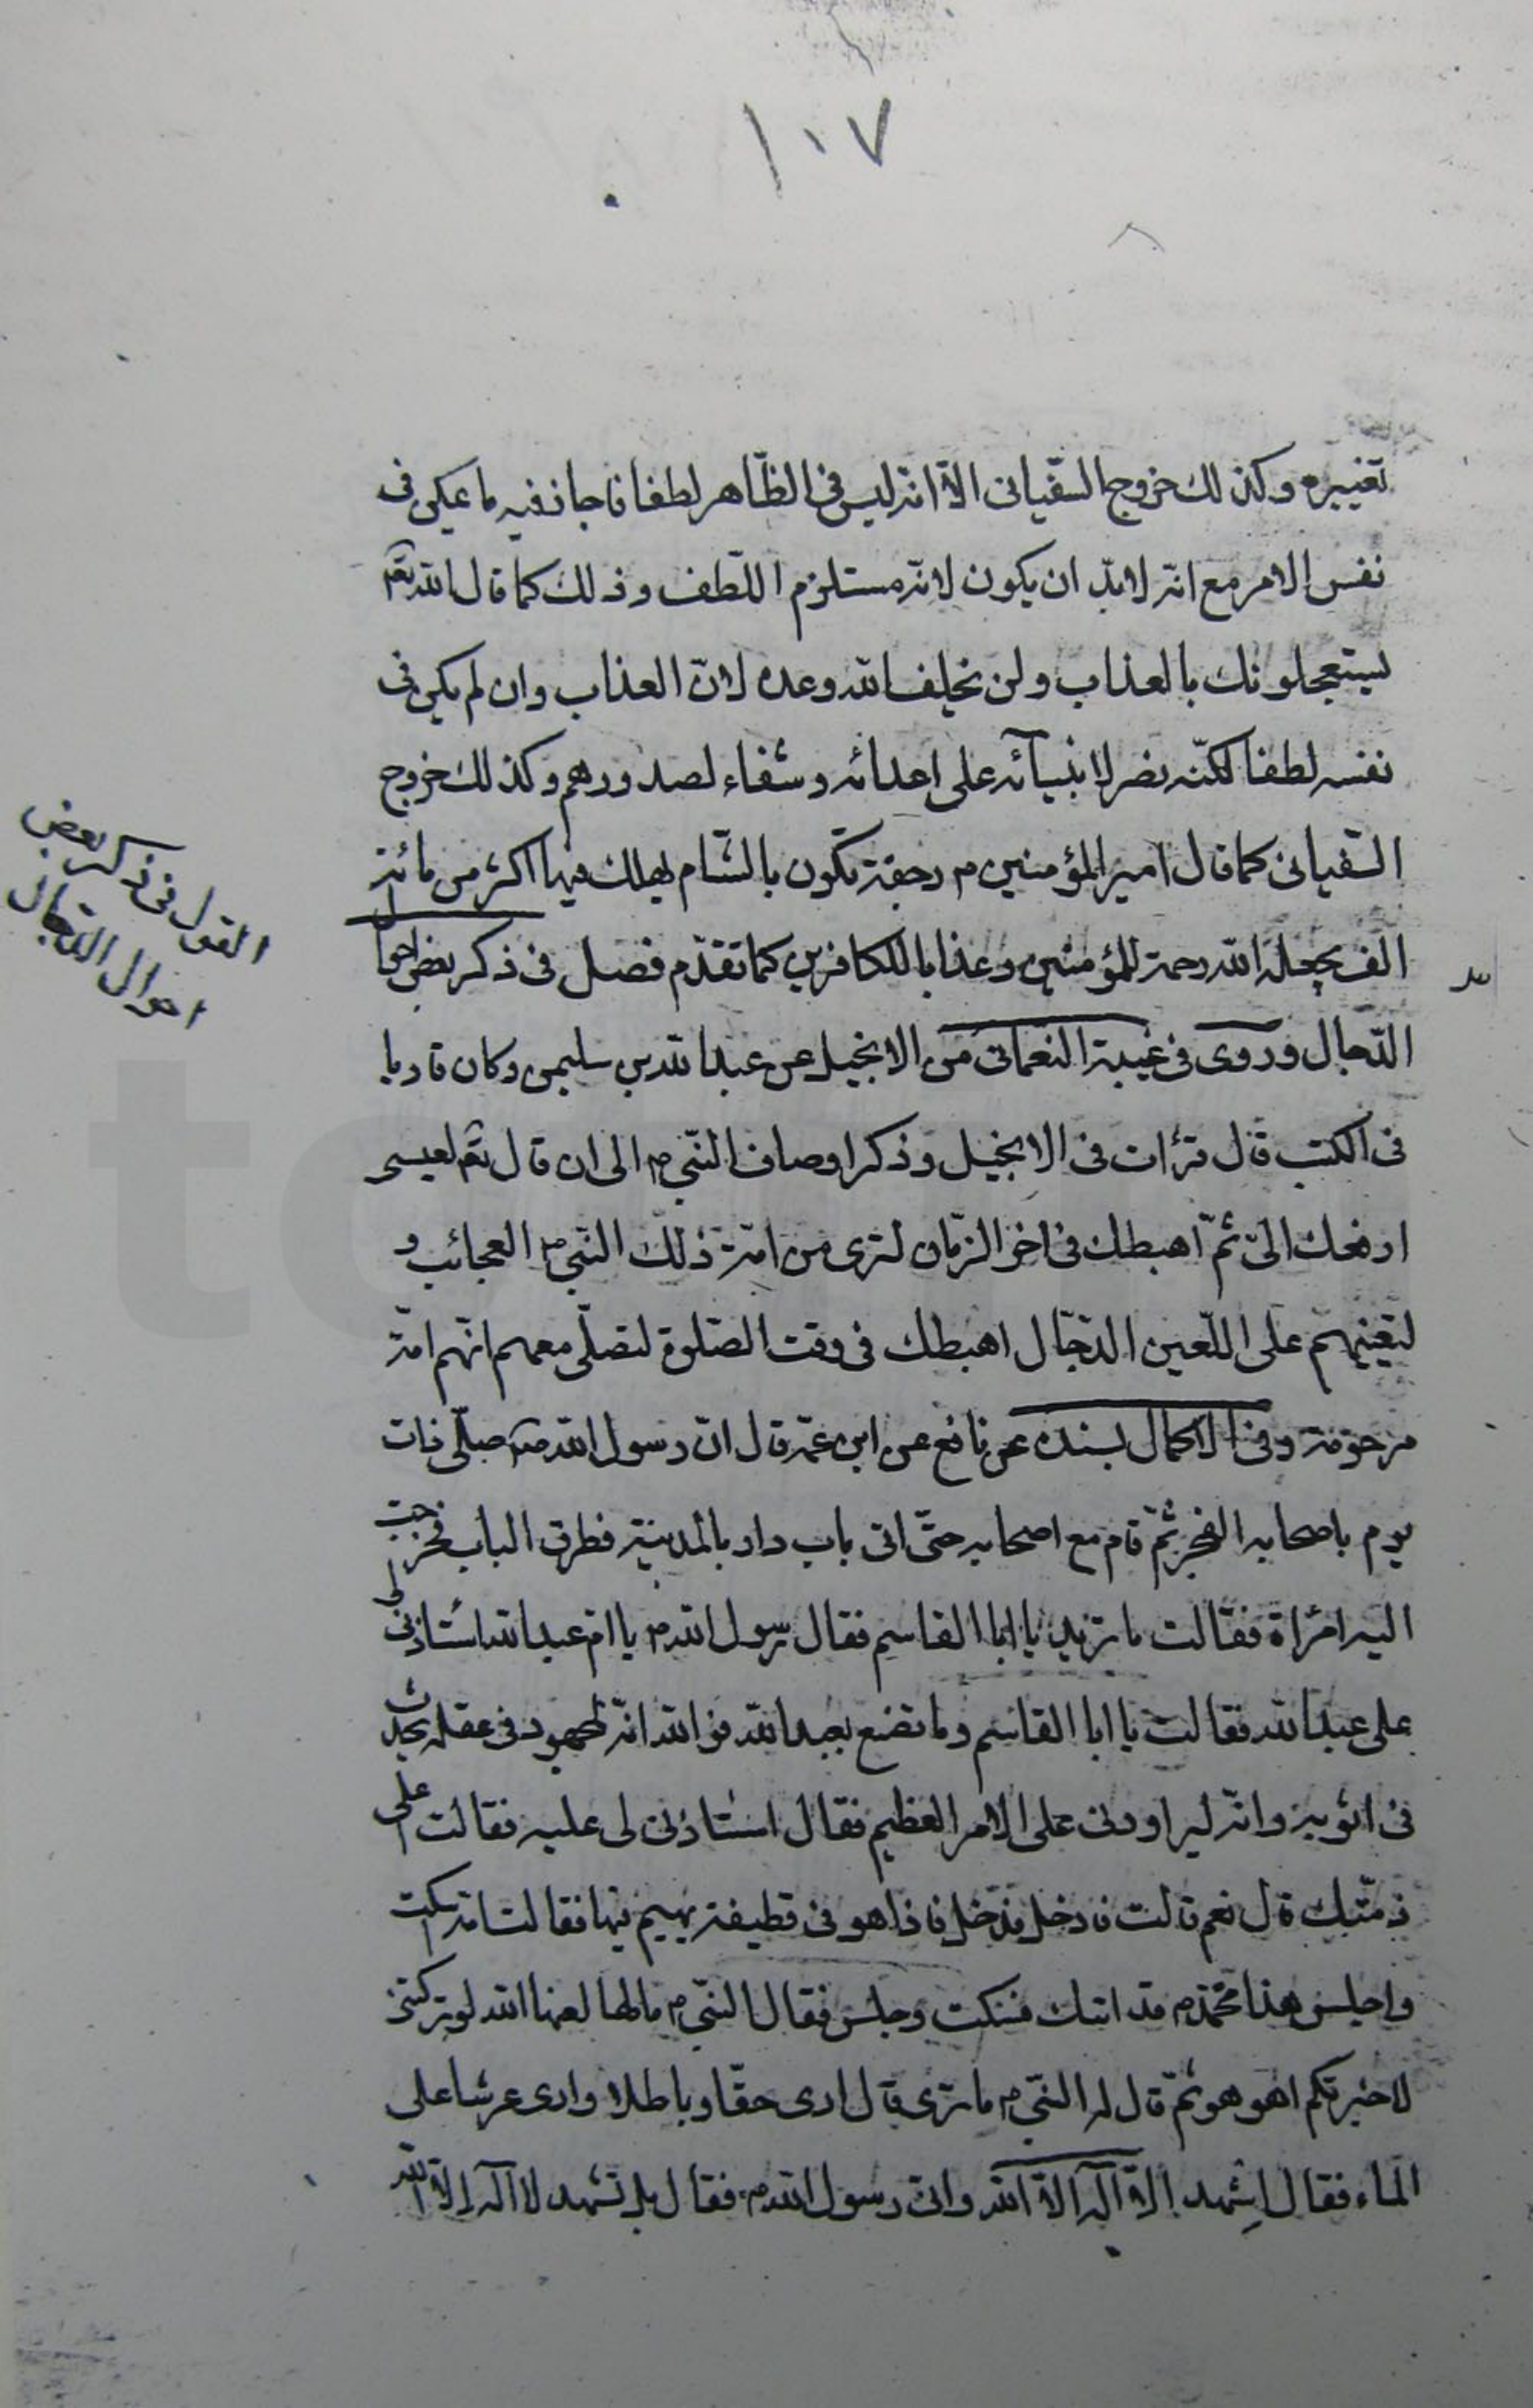 ١٠٧
تغييره وكذلك خروج السّفيانى الّا انّه ليس فى الظّاهر لطفا فاجاز فيه ما يمكن فى
نفس الامر مع انّه لابدّ ان يكون لانّه مستلزم اللّطف وذلك كما قال الله تعم
يستعجلونك بالعذاب ولن يخلف الله وعده لانّ العذاب وان لم يكن فى
نفسه لطفا لكنّه نصر لانبيآئه على اعدائه وشفاء لصدورهم وكذلك خروج
السّفيانى كما قال امير المؤمنين م رجفة تكون بالشّام يهلك فيها اكثر من مائة
الف يجعله الله رحمة للمؤمنين وعذابا للكافرين كما تقدّم فصل فى ذكر بعض احوال
الدّجال وروى فى غيبة النعمانى من الانجيل عن عبد الله بن سليمن وكان قاريا
فى الكتب قال قرأت فى الانجيل وذكر اوصاف النّبى ص الى ان قال تعم لعيسى
ارفعك الىّ ثمّ اهبطك فى اخر الزّمان لترى من امّة ذلك النّبى ص العجائب و
لتعينهم على اللّعين الدّجّال اهبطك فى وقت الصّلوة لتصلّى معهم انّهم امّة
مرحومة وفى الاكمال بسنده عن نافع عن ابن عمر قال انّ رسول الله ص صلّى ذات
يوم باصحابه الفجر ثمّ قام مع اصحابه حتّى اتى باب دار بالمدينة فطرق الباب فخرجت
اليه امرأة فقالت ما تريد يا ابا القاسم فقال رسول الله ص يا امّ عبد الله استأذنى لى
على عبد الله فقالت يا ابا القاسم وما تصنع بعبد الله فو الله انّه لمجهود فى عقله يحدث
فى اثوبه وانّه ليراودنى على الامر العظيم فقال استأذنى لى عليه فقالت اعلى
ذمّتك قال نعم قالت فادخل فدخل فاذا هو فى قطيفة يهيم فيها فقالت امّه اسكت
واجلس هذا محمّد ص قد اتاك فسكت وجلس فقال النّبى ص مالها لعنها الله لو تركتنى
لاخبرتكم اهو هو ثمّ قال له النّبى ص ما ترى قال ارى حقّا وباطلا وارى عرشا على
الماء فقال اشهد الّا اله الّا الله وانّى رسول الله ص فقال بل تشهد لا اله الّا الله
القول فى ذكر بعض
احوال الدّجال